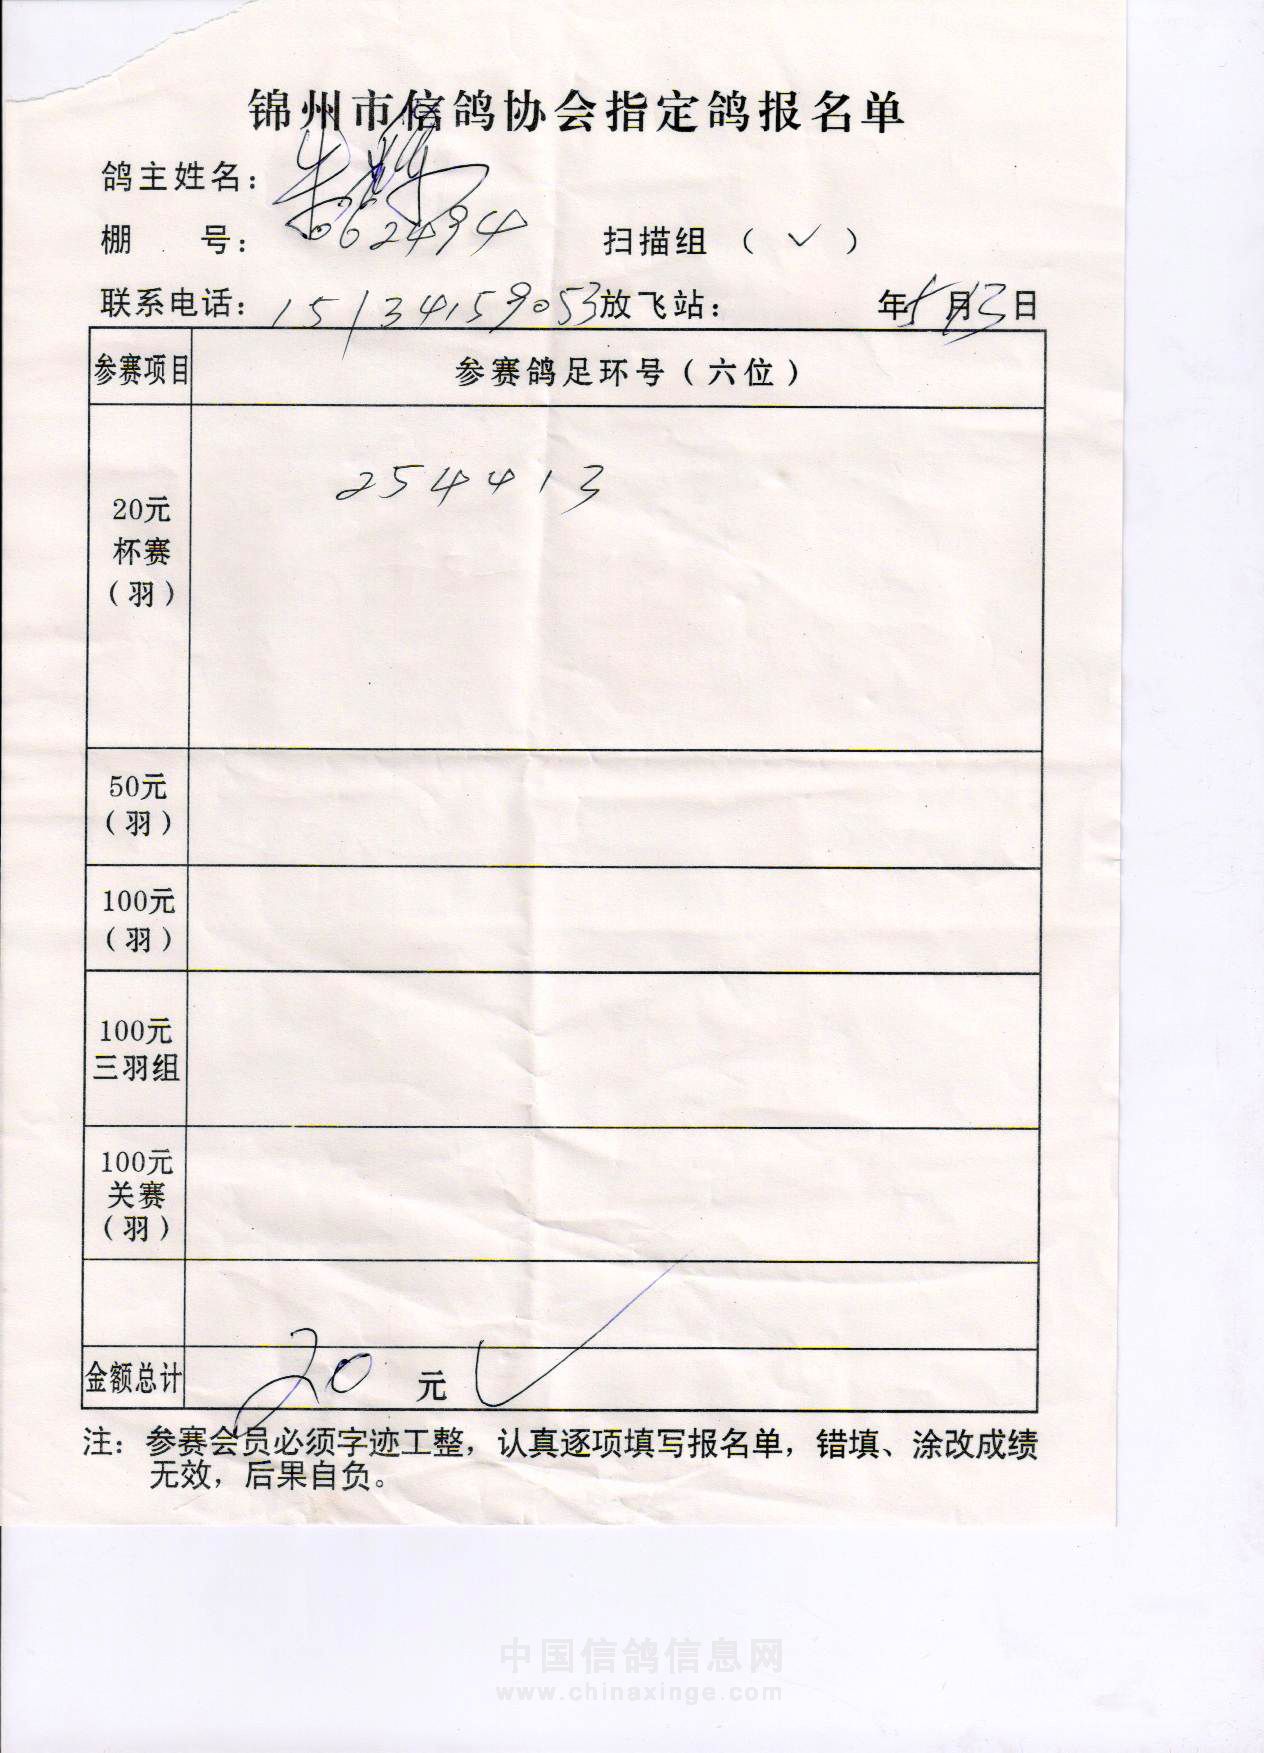 锦州市信鸽协会指定鸽报名单
鸽主姓名：朱
棚 号：062494 扫描组（✓）
联系电话：15134159053 放飞站： 年5月13日
参赛项目 参赛鸽足环号（六位）
20元 杯赛 （羽） 254413
50元 （羽）
100元 （羽）
100元 三羽组
100元 关赛 （羽）
金额总计 20 元 ✓
注：参赛会员必须字迹工整，认真逐项填写报名单，错填、涂改成绩
无效，后果自负。
中国信鸽信息网
www.chinaxinge.com